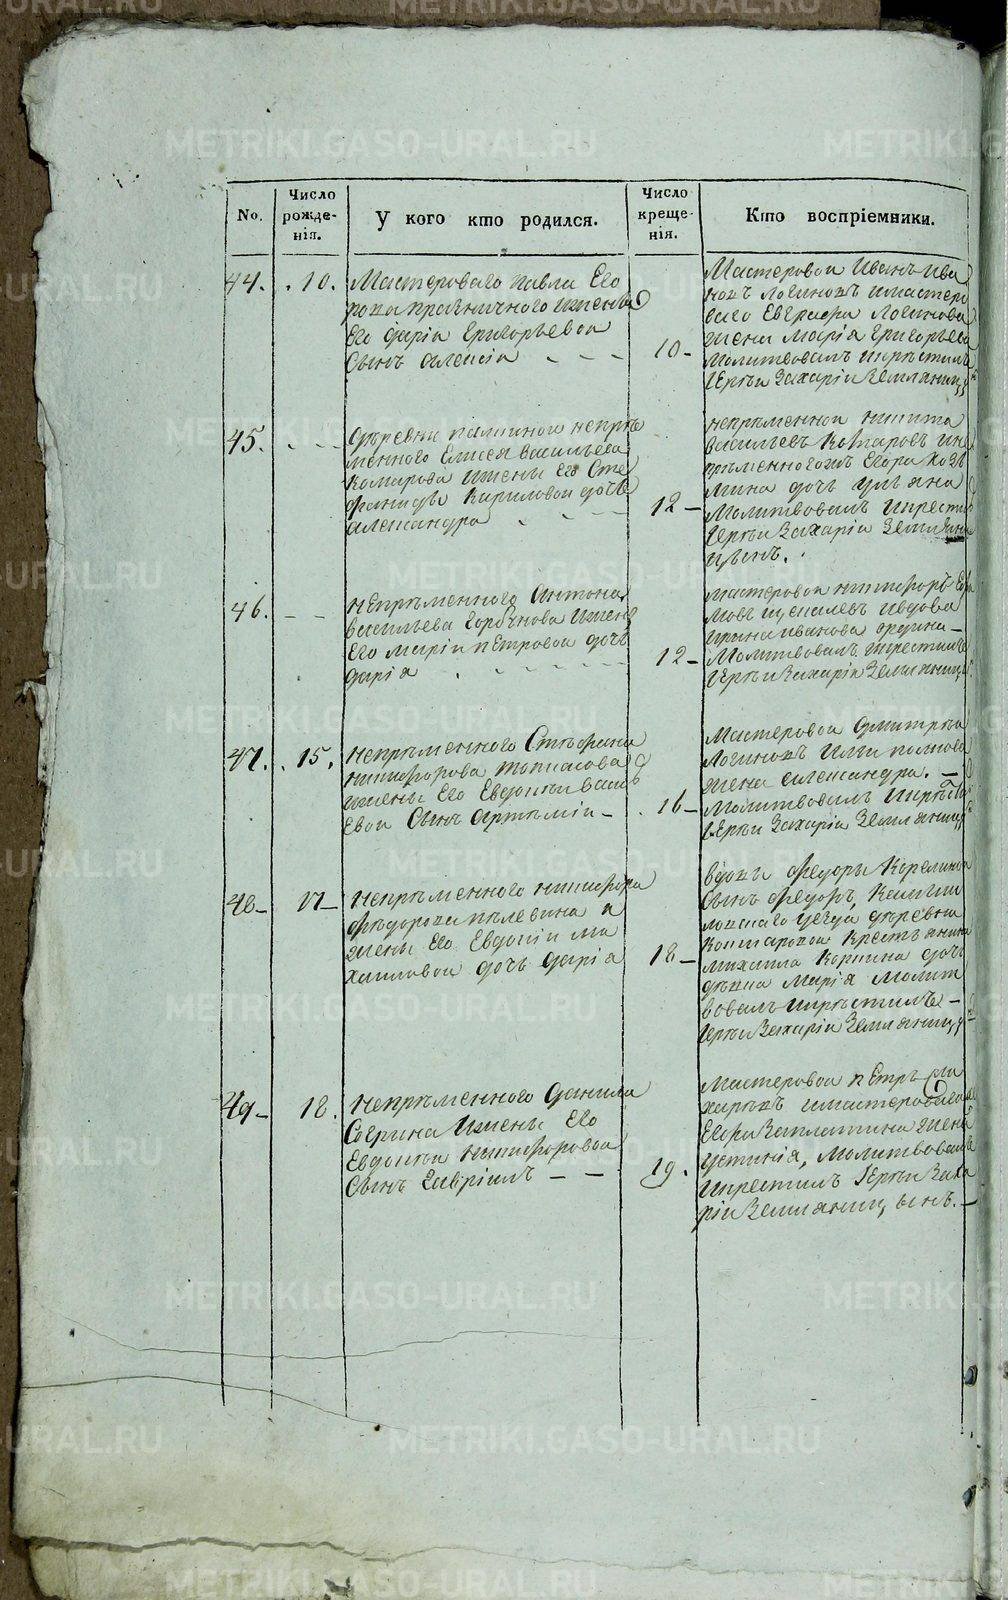 METRIKI.GASO-URAL.RU
No.
Число рожде-нія.
У кого кто родился.
Число креще-нія.
Кто воспріемники.
44.
10.
Мастероваго Павла Его
рова и жены
Его Дарія Григорьевой
Сынъ Алексій
10
Мастеровой Иванъ Ива
новъ Логиновъ и мастеро
ваго Евграфа Логинова
жена Марія Григорьева
Молитвовалъ и крѣстилъ
Іерѣй Захарій Земляницы
45.
деревни непрѣ
менного Елисея Васильева
Комарова и жены Его Сте
фаниды Кириловой дочь
Александра
12
непрѣменной Никита
Васильевъ Комаровъ и не
прѣменного Егора Козь
мина дочь Ульяна
Молитвовалъ и крести
Іерѣй Захарій Земляни
цынъ.
46.
Непрѣменного Антона
Васильева Горбунова и жены
Его Маріи Петровой дочь
Дарія
12
Мастеровой Никифоръ
и вдова
Ирина Иванова
Молитвовалъ и крестилъ
Іерѣй Захарій Земляниц
47.
15.
Непрѣменного Стефана
Никифорова
и жены Его Евдокіи Василь
евой Сынъ Артемій
16
Мастеровой Дмитрей
Логиновъ
жена Александра.
Молитвовалъ и крѣстил
Іерѣй Захарій Земляниц
48
17
Непрѣменного Никифора
Федорова Пелевина и
жены Его Евдокіи Ми
хаиловой дочь Дарія
18
вдовы Федоры Корелиной
Сынъ Федоръ, Камыш
ловскаго уезда деревни
Комаровой Крестьянина
Михаила Коршина дочь
девка Марія Молит
вовалъ и крѣстилъ
Іерѣй Захарій Земляниц
49
18.
Непрѣменного Данила
и жены Его
Евдокіи Никифоровой
Сынъ Гавріилъ
19.
Мастеровой Петръ
и мастероваго
Егора Заплатина жена
Устинія, Молитвовалъ
и крестилъ Іерѣй Заха
рій Земляницынъ.